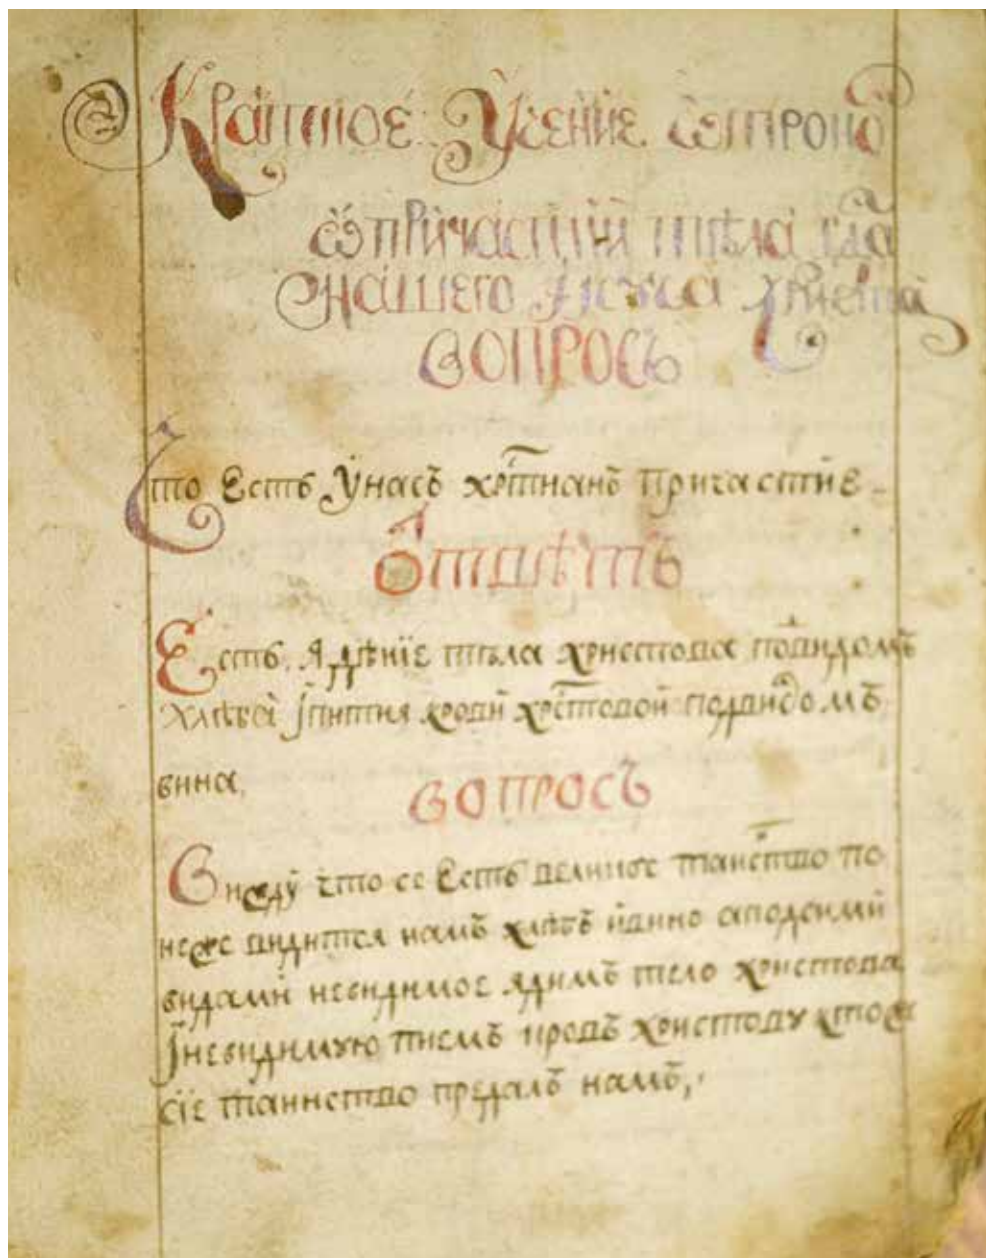 Краткое: Учение. ѿтроко
ѡ причастїй тѣла гда
нашего Іисуса христа
вопросъ
Что есть Ү насъ хрⷭ҇тианъ причастие
ѿтвѣтъ
Есть, ядѣнїе тѣла христова подвидомъ
хлѣба ӏпития крови хрⷭ҇товой подвидомъ
вина,
вопросъ
В иежду что се есть великое таинⷭ҇тво по
неже видится намъ хлѣбъ ивино аподсими
видами невидимое ядимъ тело христова
ӏневидимую пиемъ кровь христову ктоже
сїе таинство предалъ намъ,